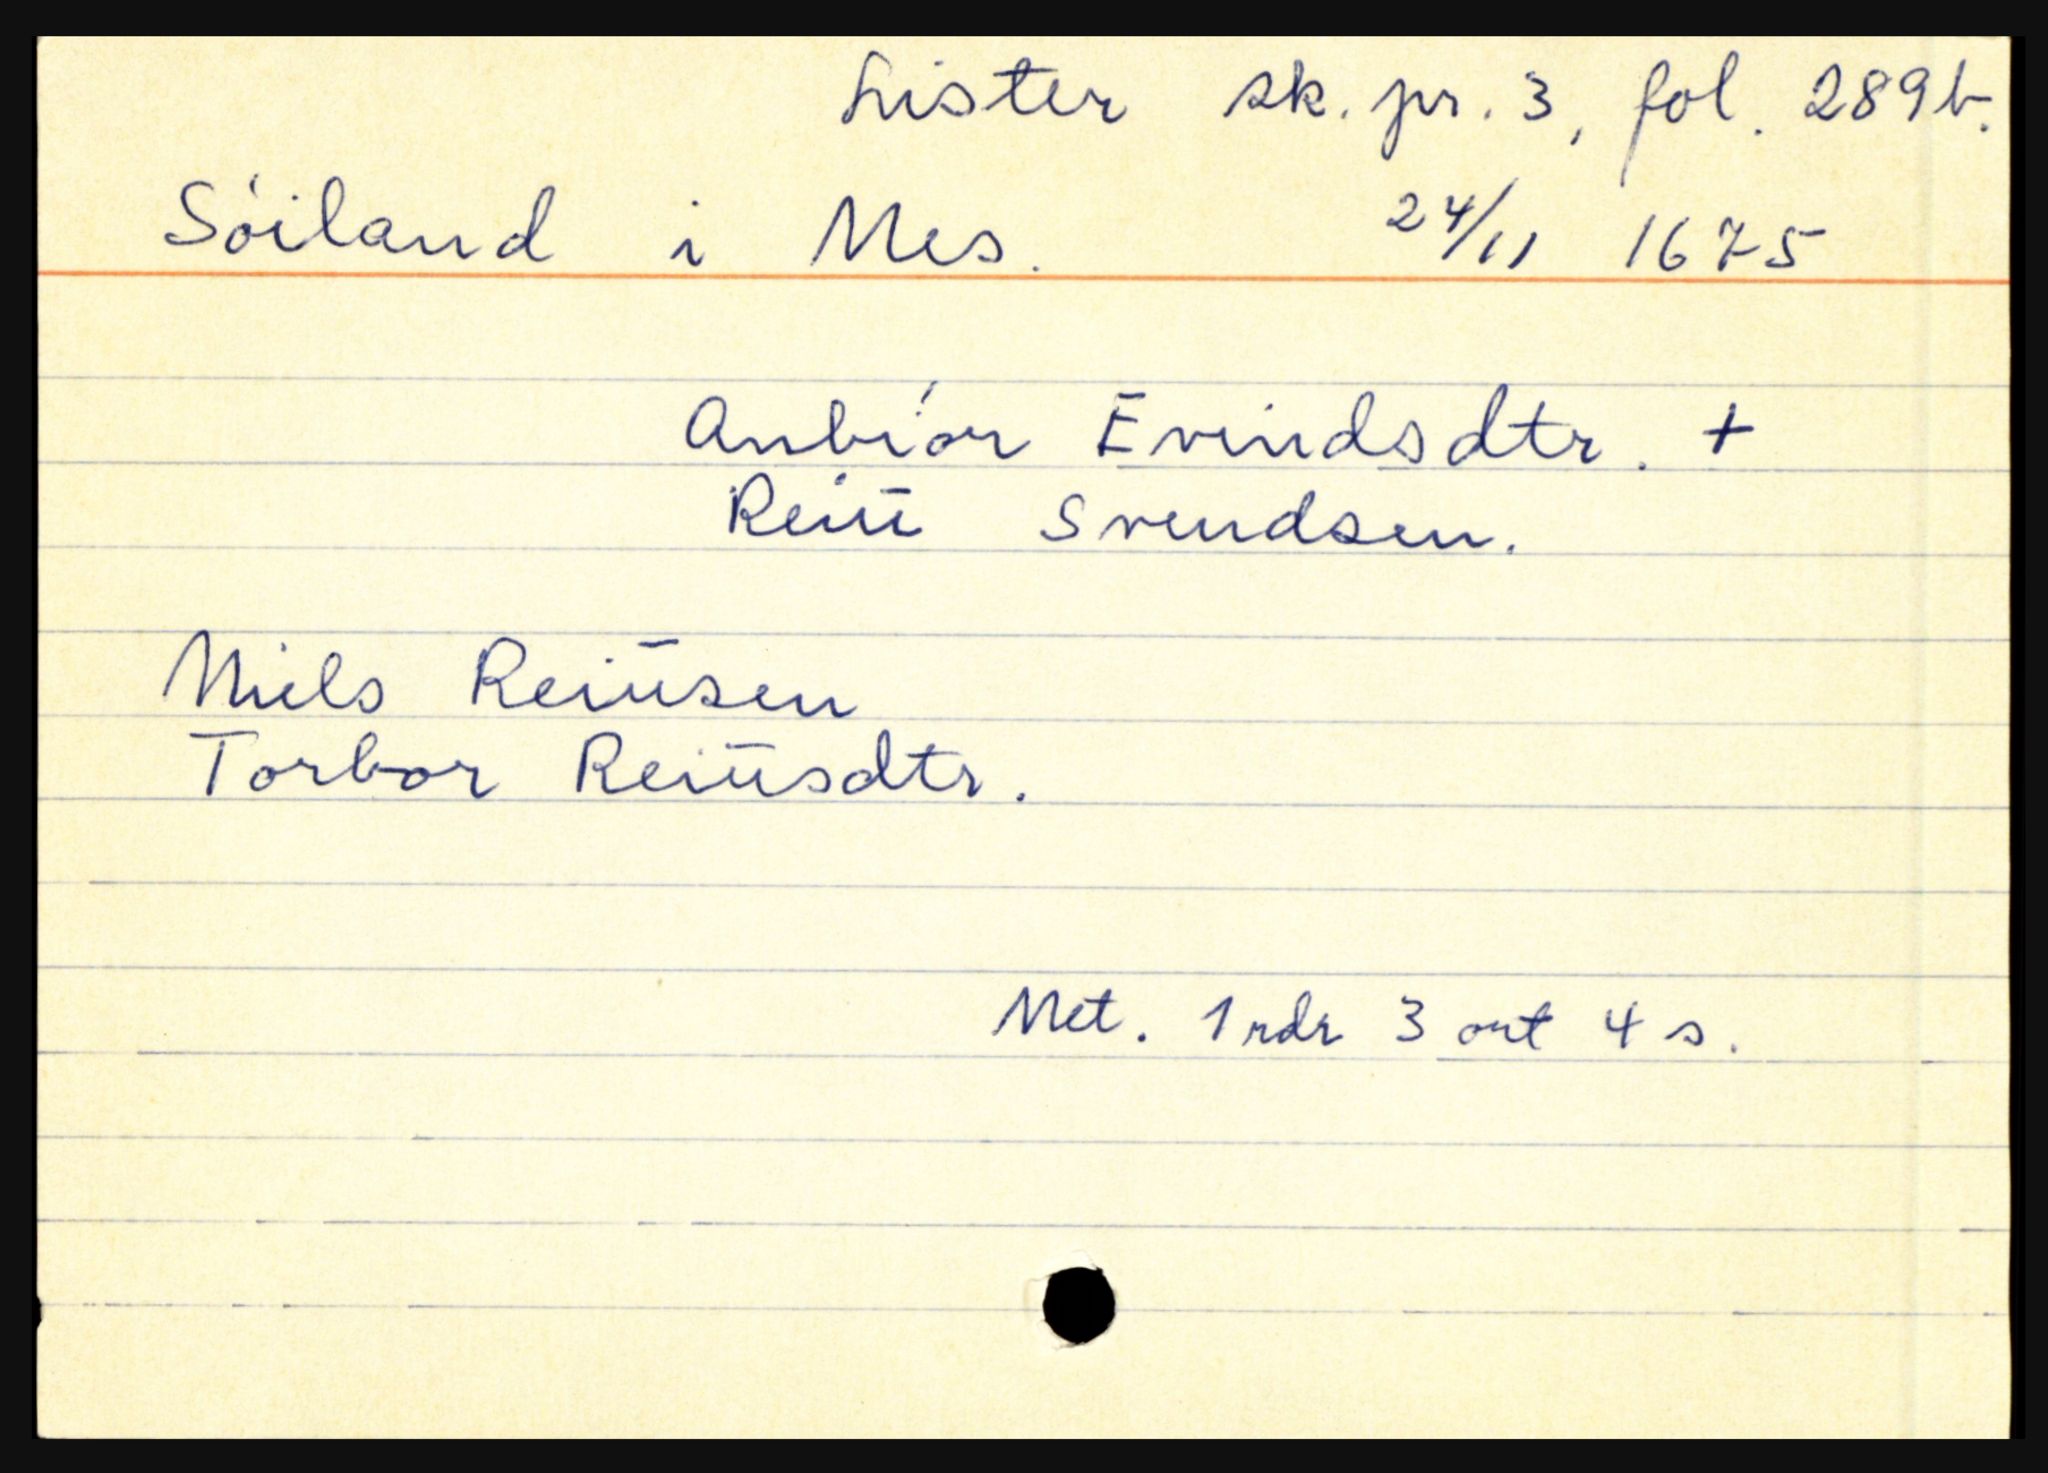 Lister sk. pr. 3, fol. 289b.
Sóiland i Nes. 24/11 1675
Anbiór Evindsdtr. +
Reiū Svendsen.
Niels Reiūsen
Torbor Reiūsdtr.
Net. 1 rdr 3 ort 4 s.